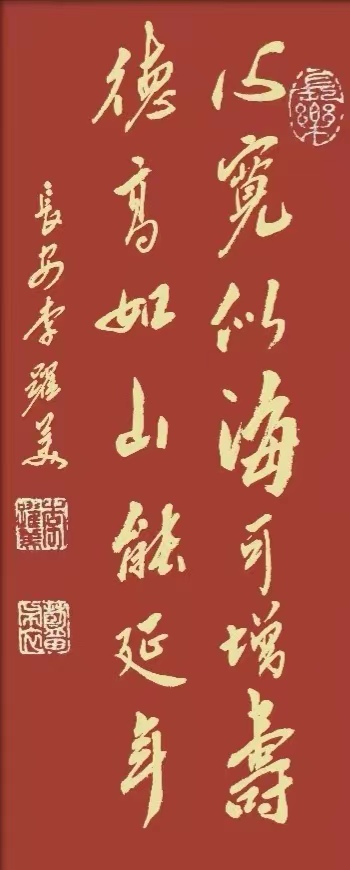 長樂
心寬似海可增壽
德高如山能延年
長安李美